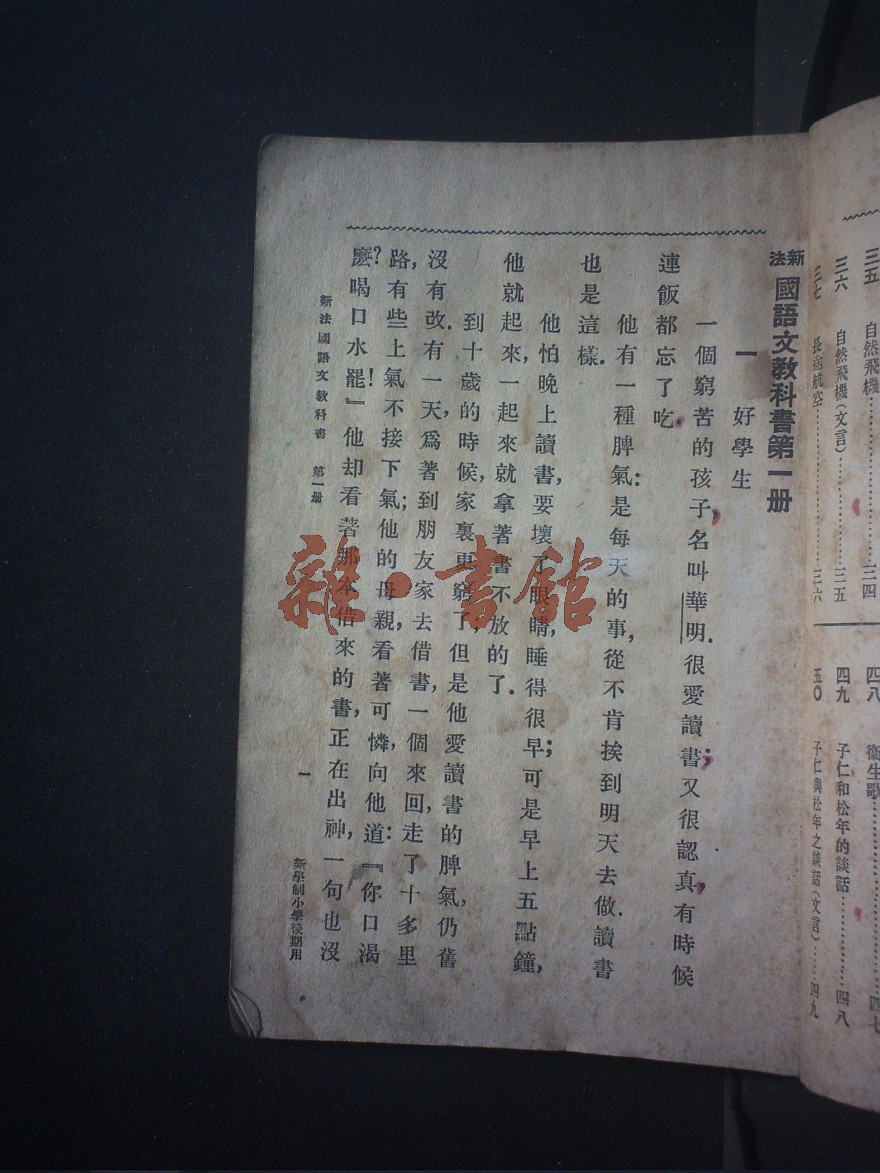 三五 自然飛機……三四
三六 自然飛機(文言)……三五
三七 長途航空……三六
四八 衞生歌……四七
四九 子仁和松年的談話……四八
五〇 子仁與松年之談話(文言)……四九
新法國語文教科書第一册
一 好學生
一個窮苦的孩子,名叫華明.很愛讀書;又很認真,有時候
連飯都忘了吃.
他有一種脾氣:是每天的事,從不肯挨到明天去做.讀書
也是這樣.
他怕晚上讀書,要壞了眼睛,睡得很早;可是早上五點鐘,
他就起來,一起來就拿著書不放的了.
到十歲的時候,家裏更窮了,但是他愛讀書的脾氣,仍舊
沒有改.有一天,爲著到朋友家去借書,一個來回,走了十多里
路,有些上氣不接下氣;他的母親,看著可憐,向他道:『你口渴
麽?喝口水罷!』他却看著那本借來的書,正在出神,一句也沒
新法國語文教科書 第一册 一 新學制小學後期用
雜·書館